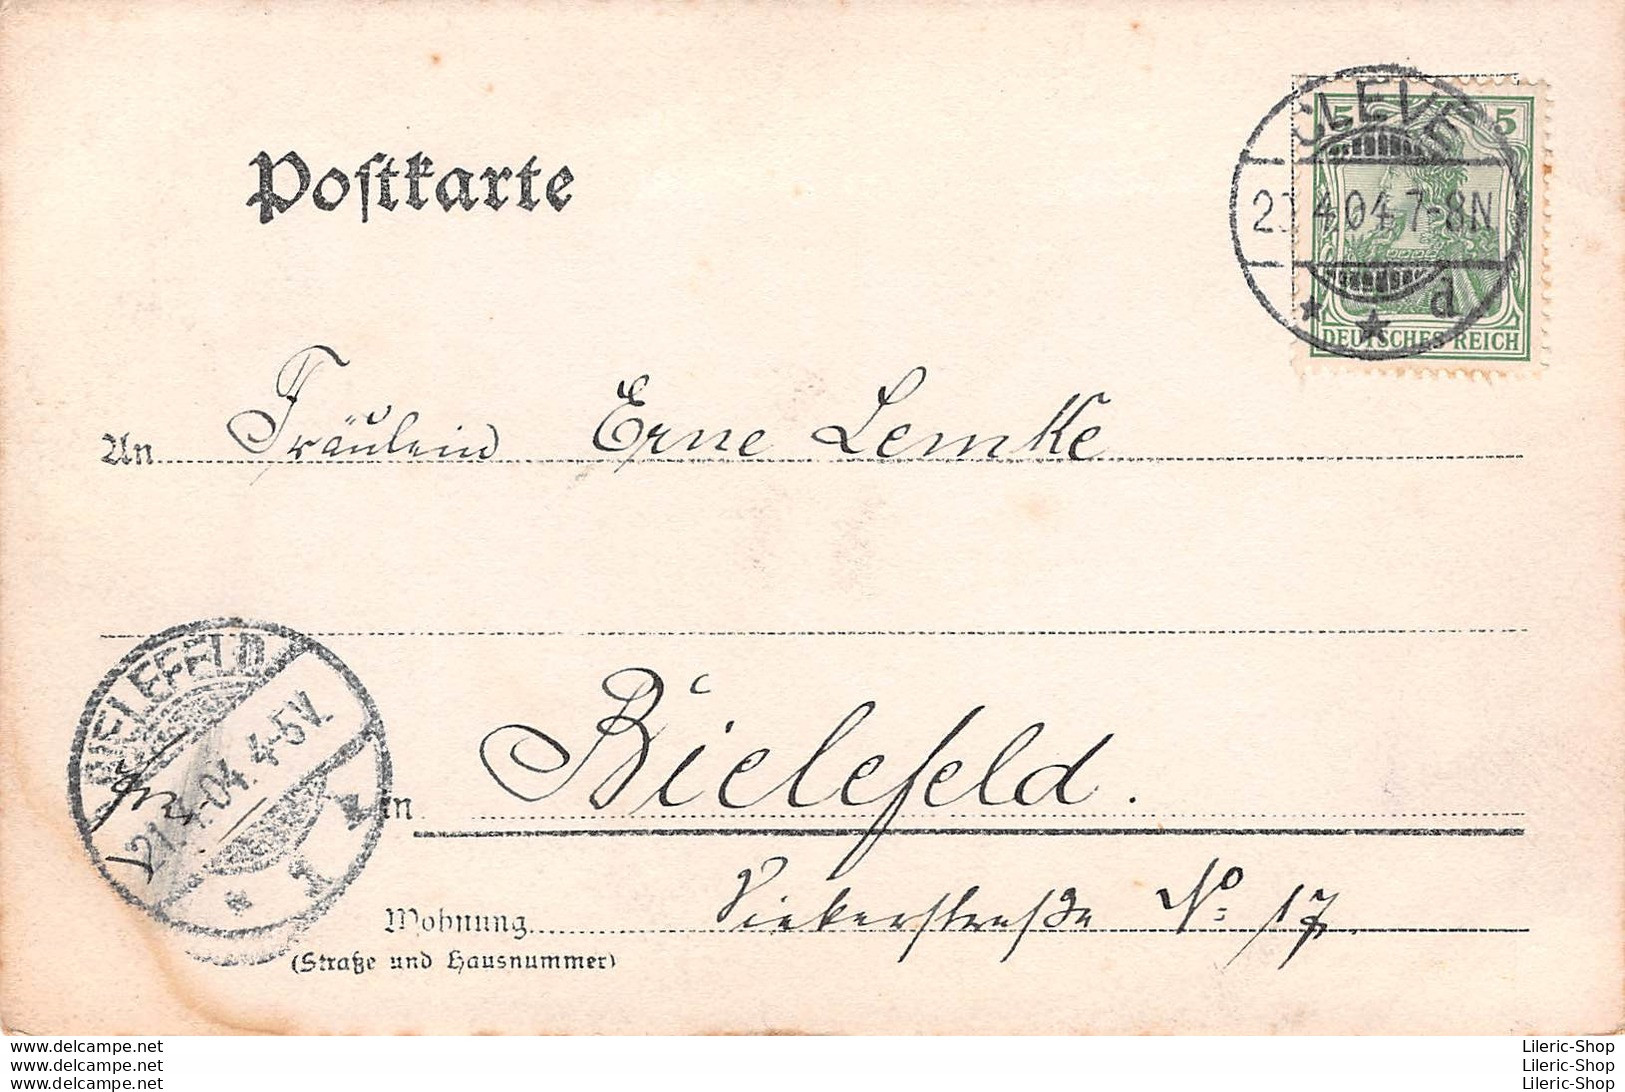 Postkarte
CLEVE
4.04.7-8N
d
5 5
DEUTSCHES REICH
An Fräulein Erne Lemke
BIELEFELD
21.4.04. 4-5V.
1
in Bielefeld.
Wohnung Siekerstraße No 17.
(Straße und Hausnummer)
www.delcampe.net Lileric-Shop
www.delcampe.net Lileric-Shop
www.delcampe.net Lileric-Shop